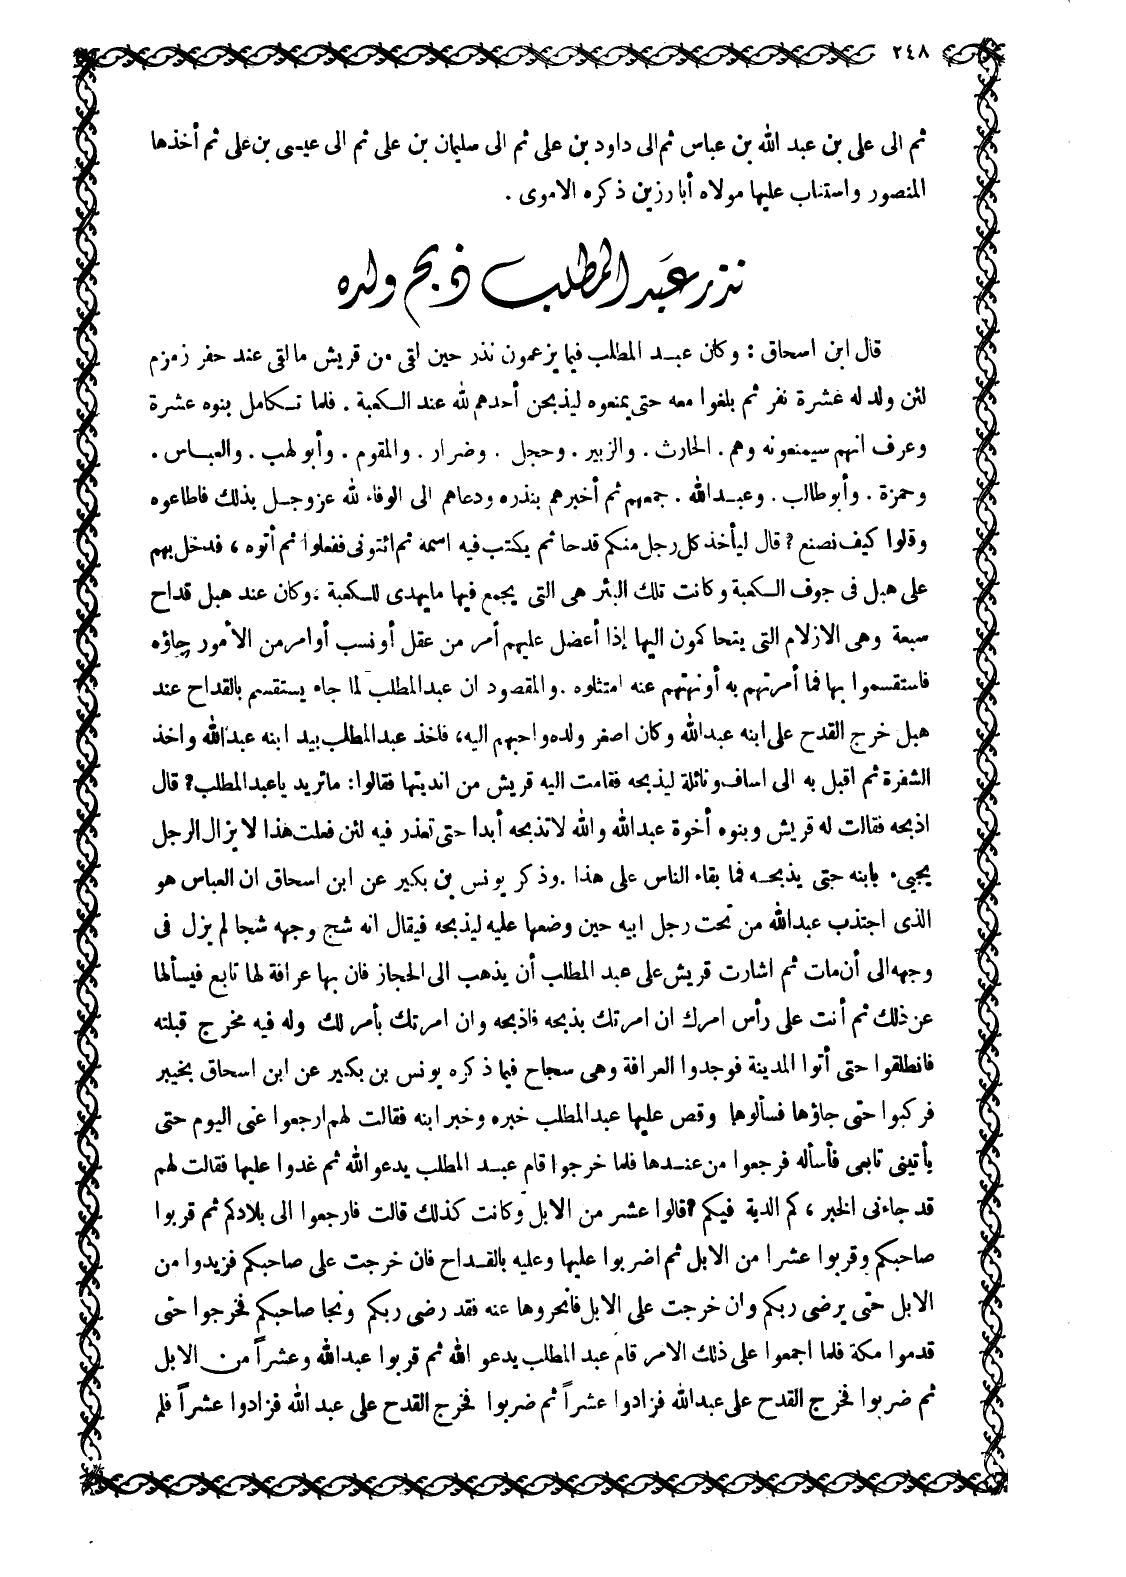 ٢٤٨
ثم الى على بن عبد الله بن عباس ثم الى داود بن على ثم الى سليمان بن على ثم الى عيسى بن على ثم أخذها
المنصور واستناب عليها مولاه أبا رزين ذكره الاموى .
نذر عبد المطلب ذبح ولده
قال ابن اسحاق : وكان عبد المطلب فيما يزعمون نذر حين لقى من قريش ما لقى عند حفر زمزم
لئن ولد له عشرة نفر ثم بلغوا معه حتى يمنعوه ليذبحن أحدهم لله عند الكعبة . فلما تكامل بنوه عشرة
وعرف انهم سيمنعونه وهم . الحارث . والزبير . وحجل . وضرار . والمقوم . وأبو لهب . والعباس .
وحمزة . وأبو طالب . وعبد الله . جمعهم ثم أخبرهم بنذره ودعاهم الى الوفاء لله عز وجل بذلك فاطاعوه
وقلوا كيف نصنع ? قال ليأخذ كل رجل منكم قدحا ثم يكتب فيه اسمه ثم ائتونى ففعلوا ثم أتوه ، فدخل بهم
على هبل فى جوف الكعبة وكانت تلك البئر هى التى يجمع فيها ما يهدى للكعبة . وكان عند هبل قداح
سبعة وهى الازلام التى يتحاكمون اليها إذا أعضل عليهم أمر من عقل أو نسب أو امر من الأمور جاؤه
فاستقسموا بها فما أمرتهم به أو نهتهم عنه امتثلوه . والمقصود ان عبد المطلب لما جاء يستقسم بالقداح عند
هبل خرج القدح على ابنه عبد الله وكان اصغر ولده واحبهم اليه ، فاخذ عبد المطلب بيد ابنه عبد الله واخذ
الشفرة ثم اقبل به الى اساف ونائلة ليذبحه فقامت اليه قريش من انديتها فقالوا : ما تريد يا عبد المطلب ? قال
اذبحه فقالت له قريش وبنوه أخوة عبد الله والله لا تذبحه أبدا حتى تعذر فيه لئن فعلت هذا لا يزال الرجل
يجيىء بابنه حتى يذبحه فما بقاء الناس على هذا . وذكر يونس بن بكير عن ابن اسحاق ان العباس هو
الذى اجتذب عبد الله من تحت رجل ابيه حين وضعها عليه ليذبحه فيقال انه شج وجهه شجا لم يزل فى
وجهه الى أن مات ثم اشارت قريش على عبد المطلب أن يذهب الى الحجاز فان بها عرافة لها تابع فيسألها
عن ذلك ثم أنت على رأس امرك ان امرتك بذبحه فاذبحه وان امرتك بأمر لك وله فيه مخرج قبلته
فانطلقوا حتى أتوا المدينة فوجدوا العرافة وهى سجاح فيما ذكره يونس بن بكير عن ابن اسحاق بخيبر
فركبوا حتى جاؤها فسألوها وقص عليها عبد المطلب خبره وخبر ابنه فقالت لهم ارجعوا عنى اليوم حتى
يأتينى تابعى فأسأله فرجعوا من عندها فلما خرجوا قام عبد المطلب يدعو الله ثم غدوا عليها فقالت لهم
قد جاءنى الخبر ، كم الدية فيكم ? قالوا عشر من الابل وكانت كذلك قالت فارجعوا الى بلادكم ثم قربوا
صاحبكم وقربوا عشرا من الابل ثم اضربوا عليها وعليه بالقداح فان خرجت على صاحبكم فزيدوا من
الابل حتى يرضى ربكم وان خرجت على الابل فانحروها عنه فقد رضى ربكم ونجا صاحبكم فخرجوا حتى
قدموا مكة فلما اجمعوا على ذلك الامر قام عبد المطلب يدعو الله ثم قربوا عبد الله وعشراً من الابل
ثم ضربوا فخرج القدح على عبد الله فزادوا عشراً ثم ضربوا فخرج القدح على عبد الله فزادوا عشراً فلم